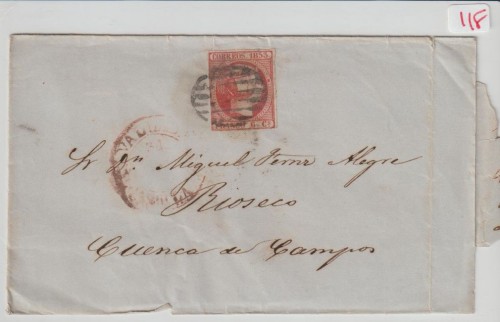 11F
CORREOS 1853
Sr Dn Miguel Fernz Alegre
Rioseco
Cuenca de Campos